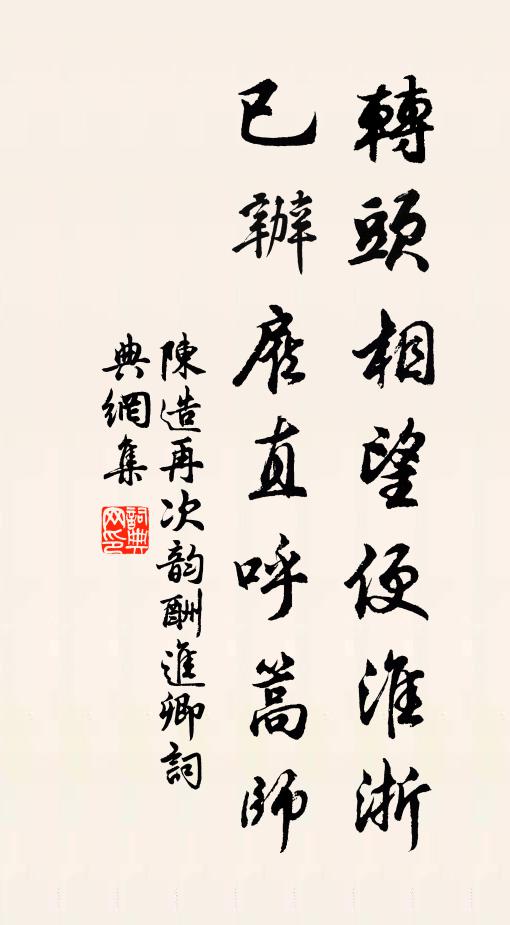 轉頭相望便淮浙
已辦雇直呼篙師
陳造再次韵酬進卿詞
典網集
詞典網印